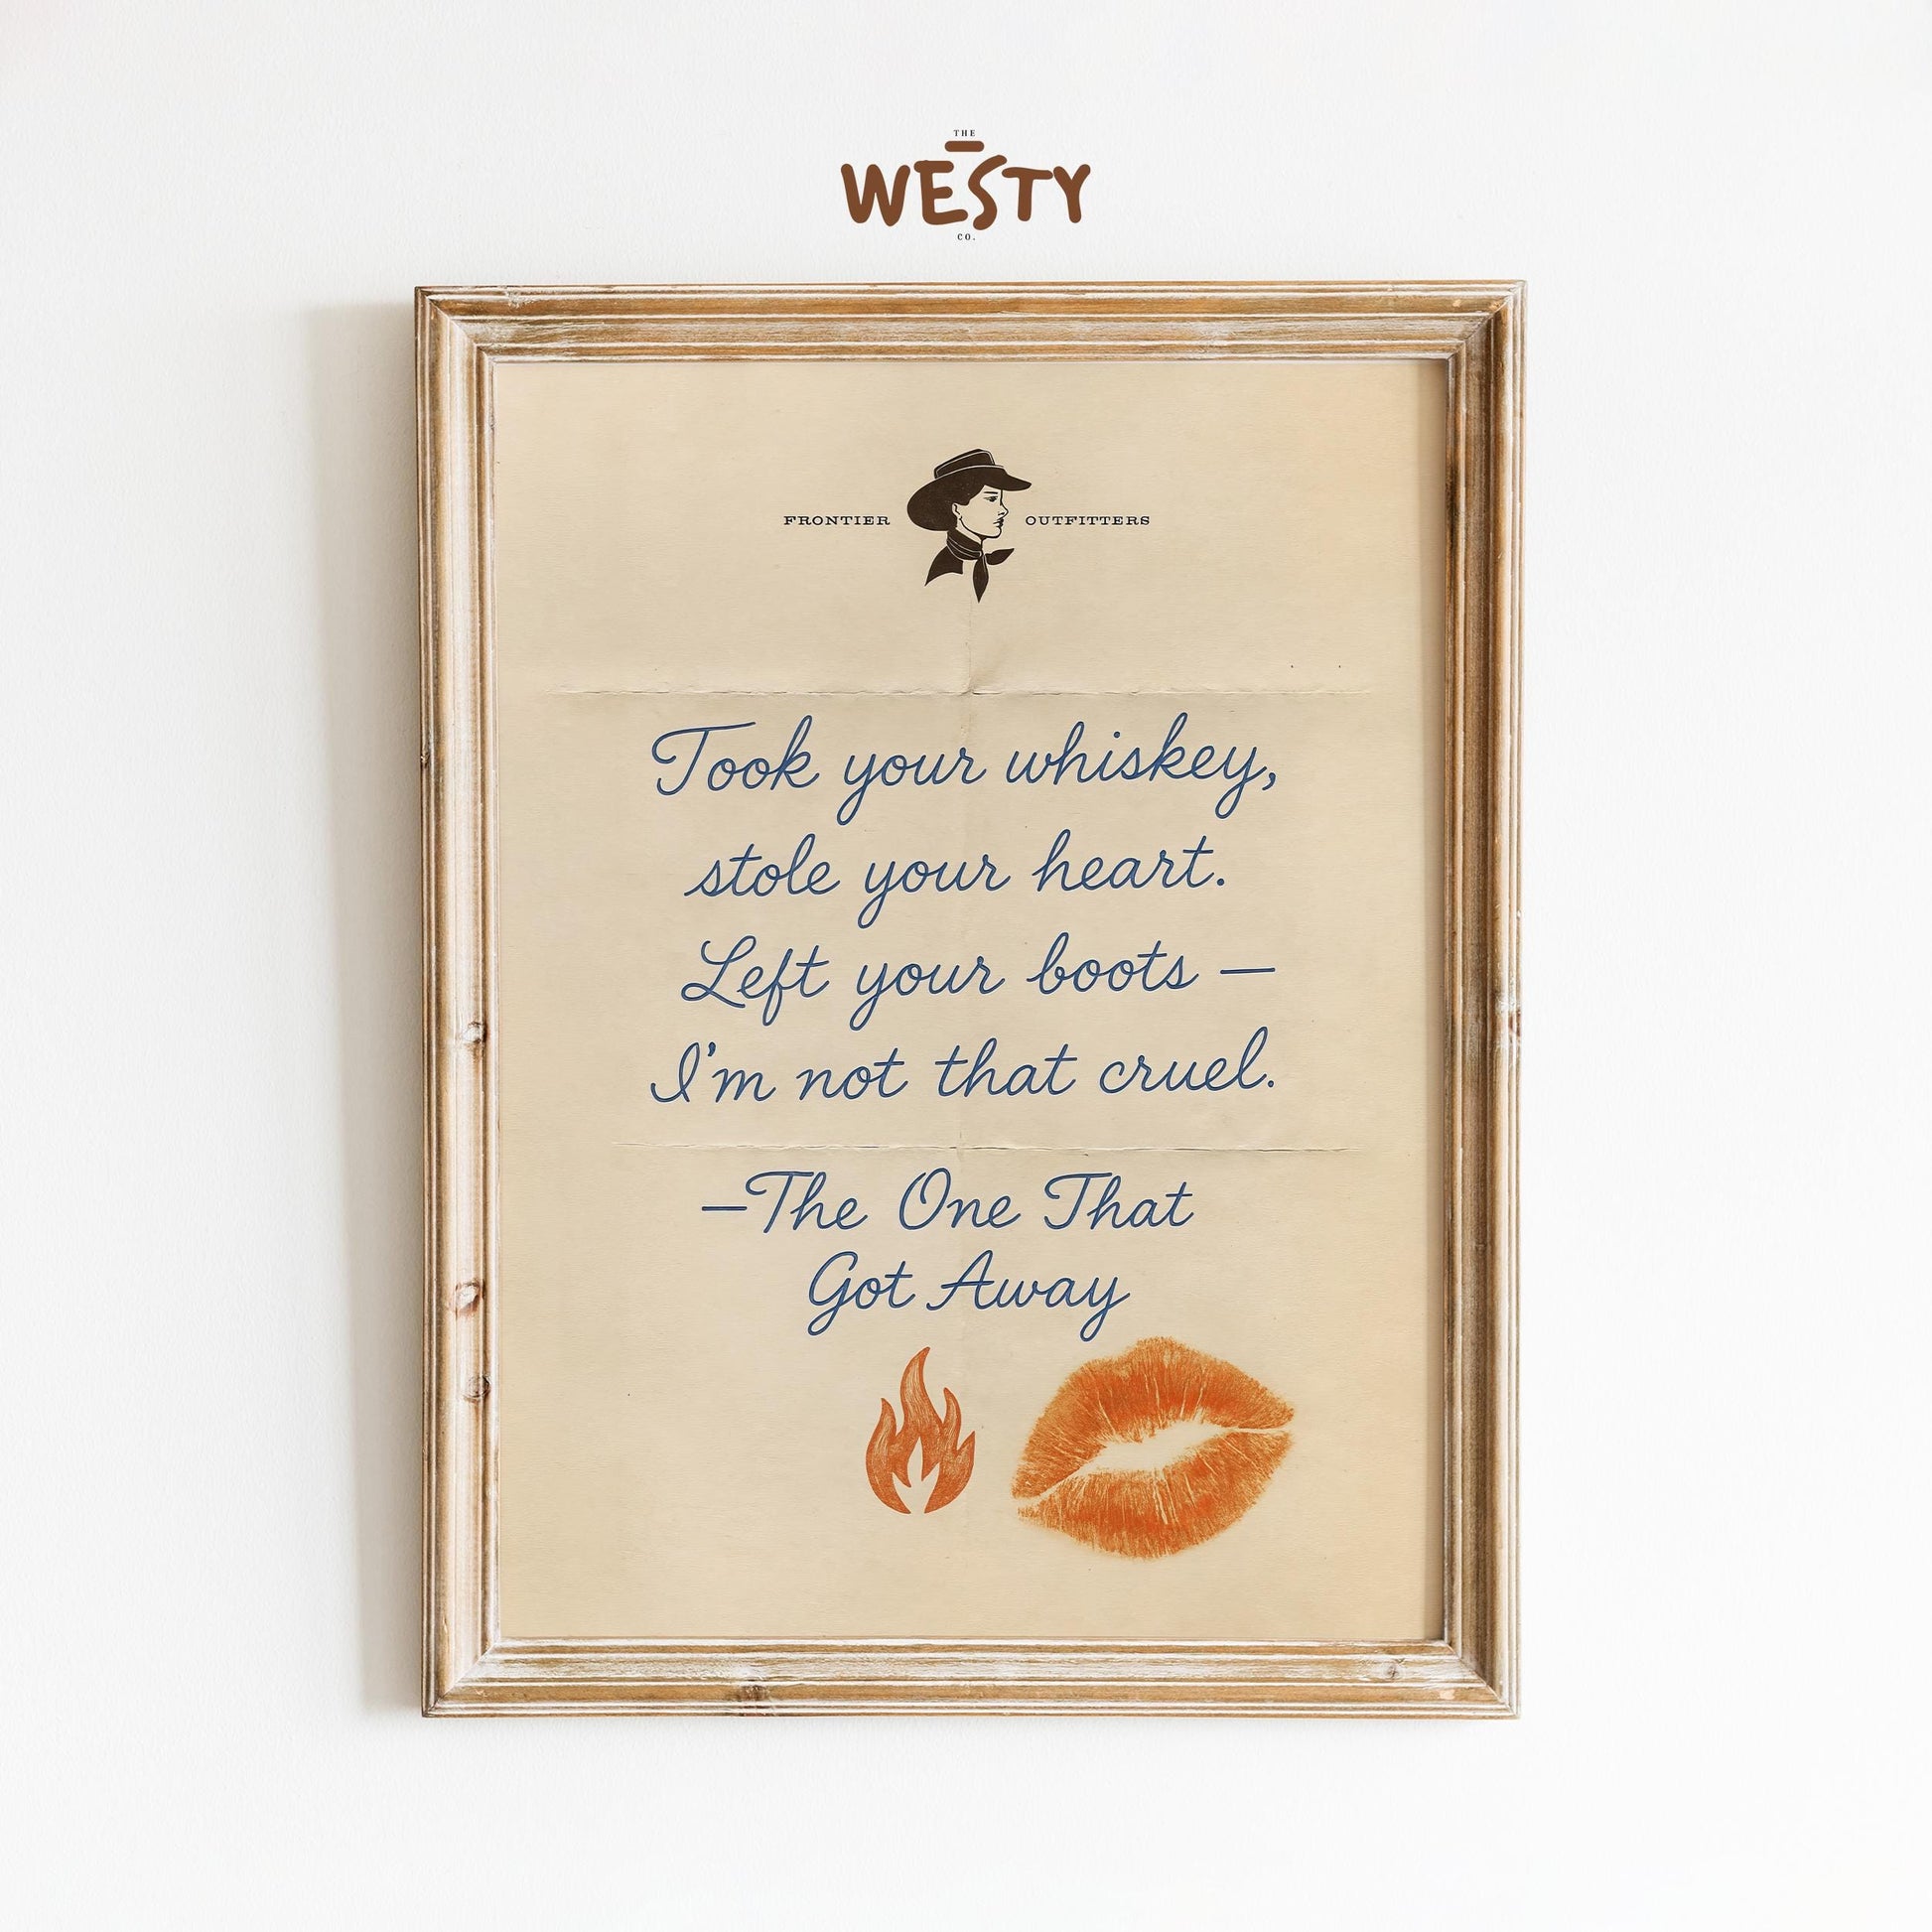 THE
WESTY
CO.
FRONTIER OUTFITTERS
Took your whiskey,
stole your heart.
Left your boots —
I'm not that cruel.
—The One That
Got Away